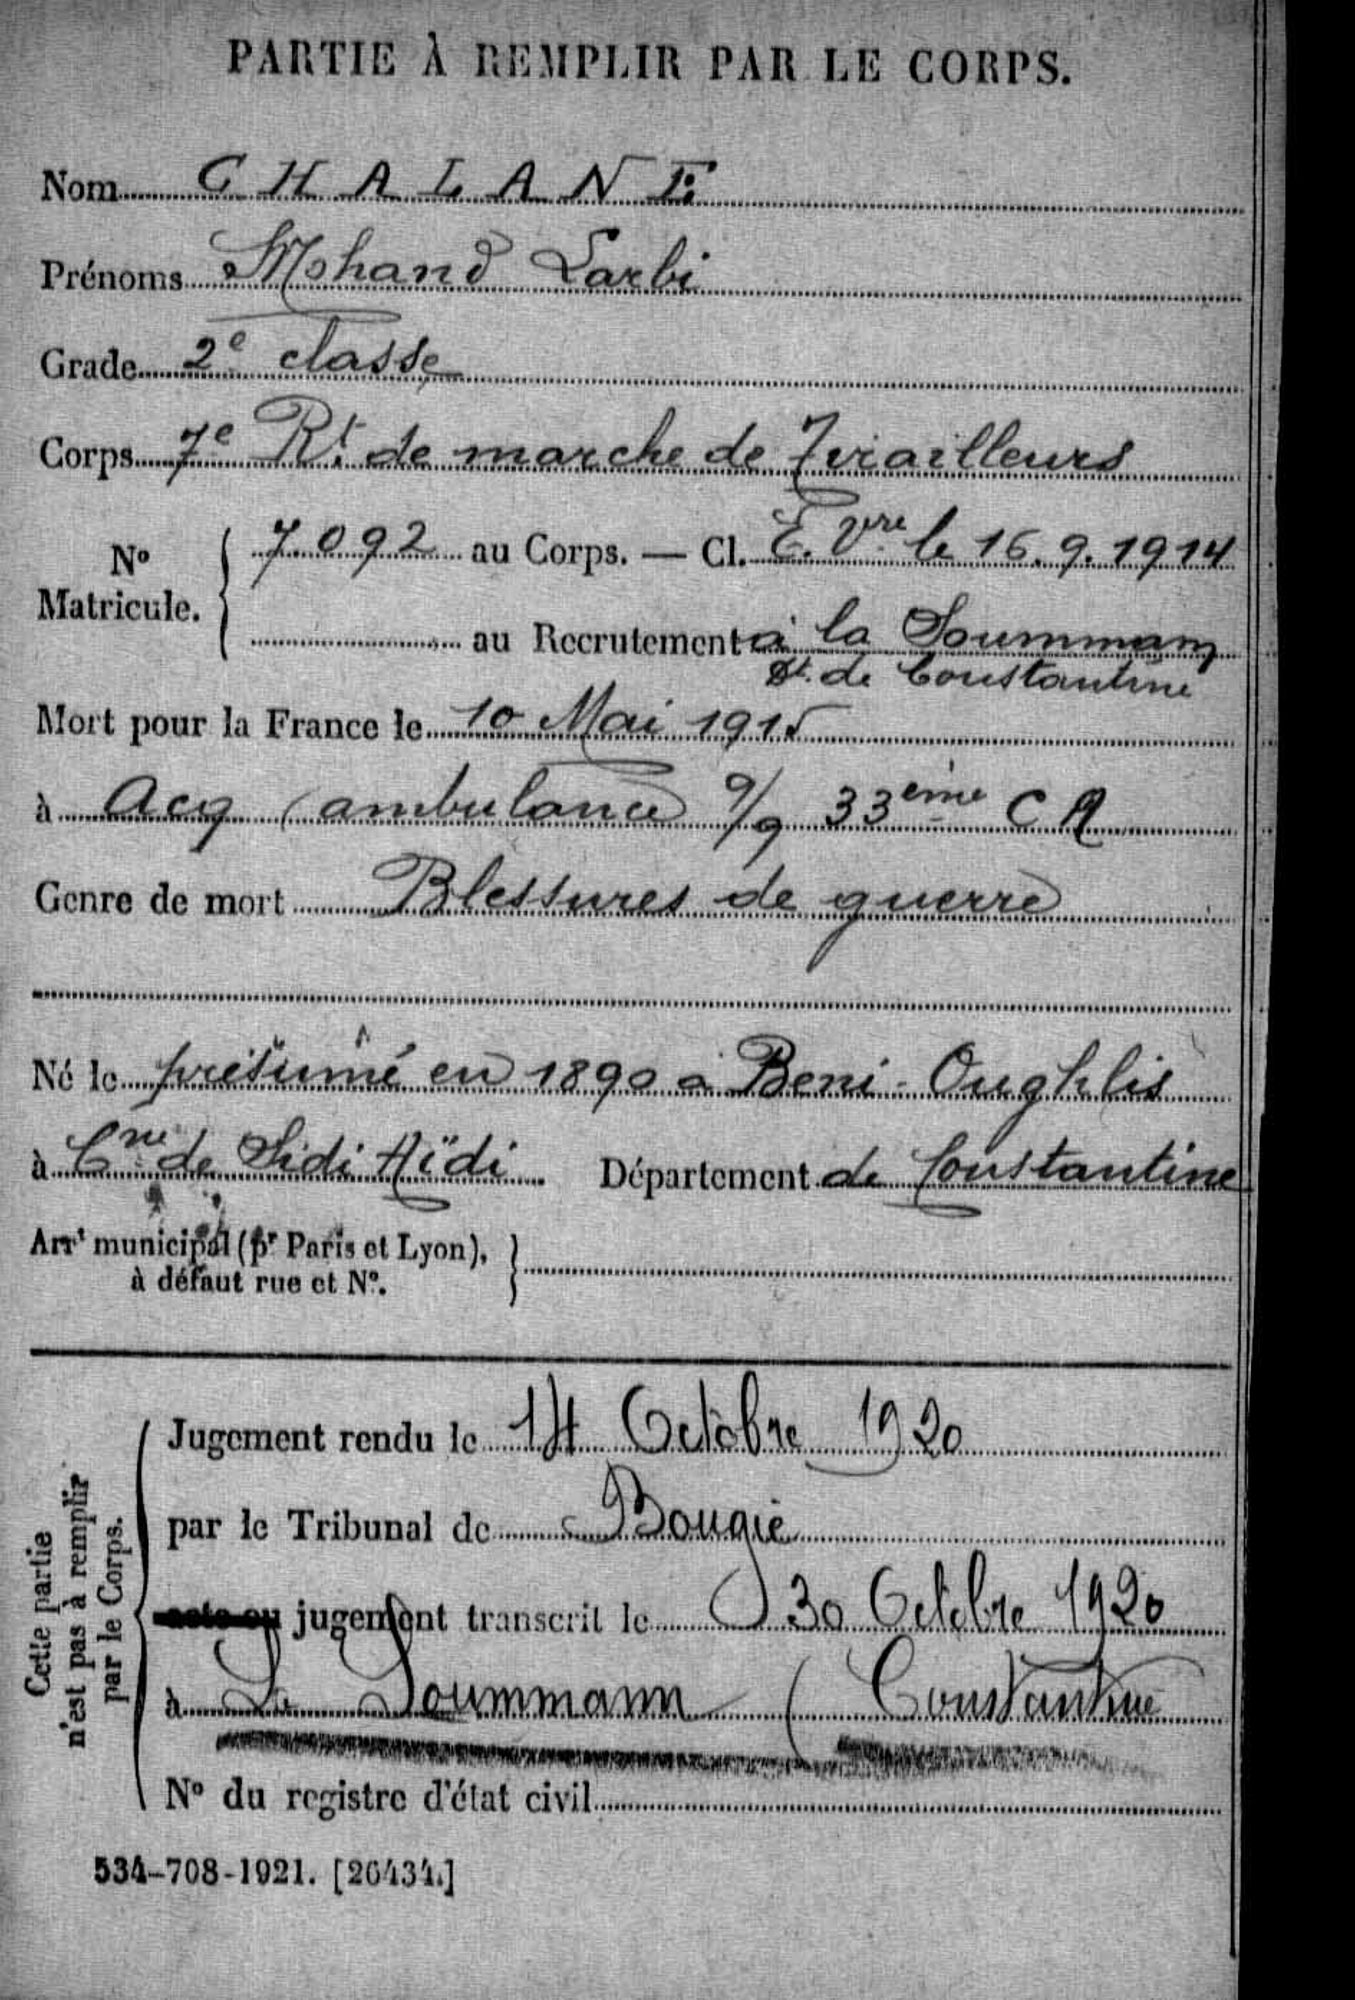 PARTIE À REMPLIR PAR LE CORPS.
Nom GHALANE
Prénoms Mohand Larbi
Grade 2e classe
Corps 7e Rt de marche de Tirailleurs
No Matricule. { 7092 au Corps. — Cl. E. Vre le 16.9.1914
au Recrutement à la Soummam
Dt. de Constantine
Mort pour la France le 10 Mai 1915
à Acq (ambulance 9/9 33ème CA
Genre de mort Blessures de guerre
Né le présumé en 1890 à Beni-Oughlis
à Cne de Sidi Aïdi Département de Constantine
Arrt municipal (pr Paris et Lyon), }
à défaut rue et No.
Cette partie
n'est pas à remplir
par le Corps.
Jugement rendu le 14 Octobre 1920
par le Tribunal de Bougie
acte ou jugement transcrit le 30 Octobre 1920
à La Soummann (Constantine
No du registre d'état civil
534-708-1921. [26434.]